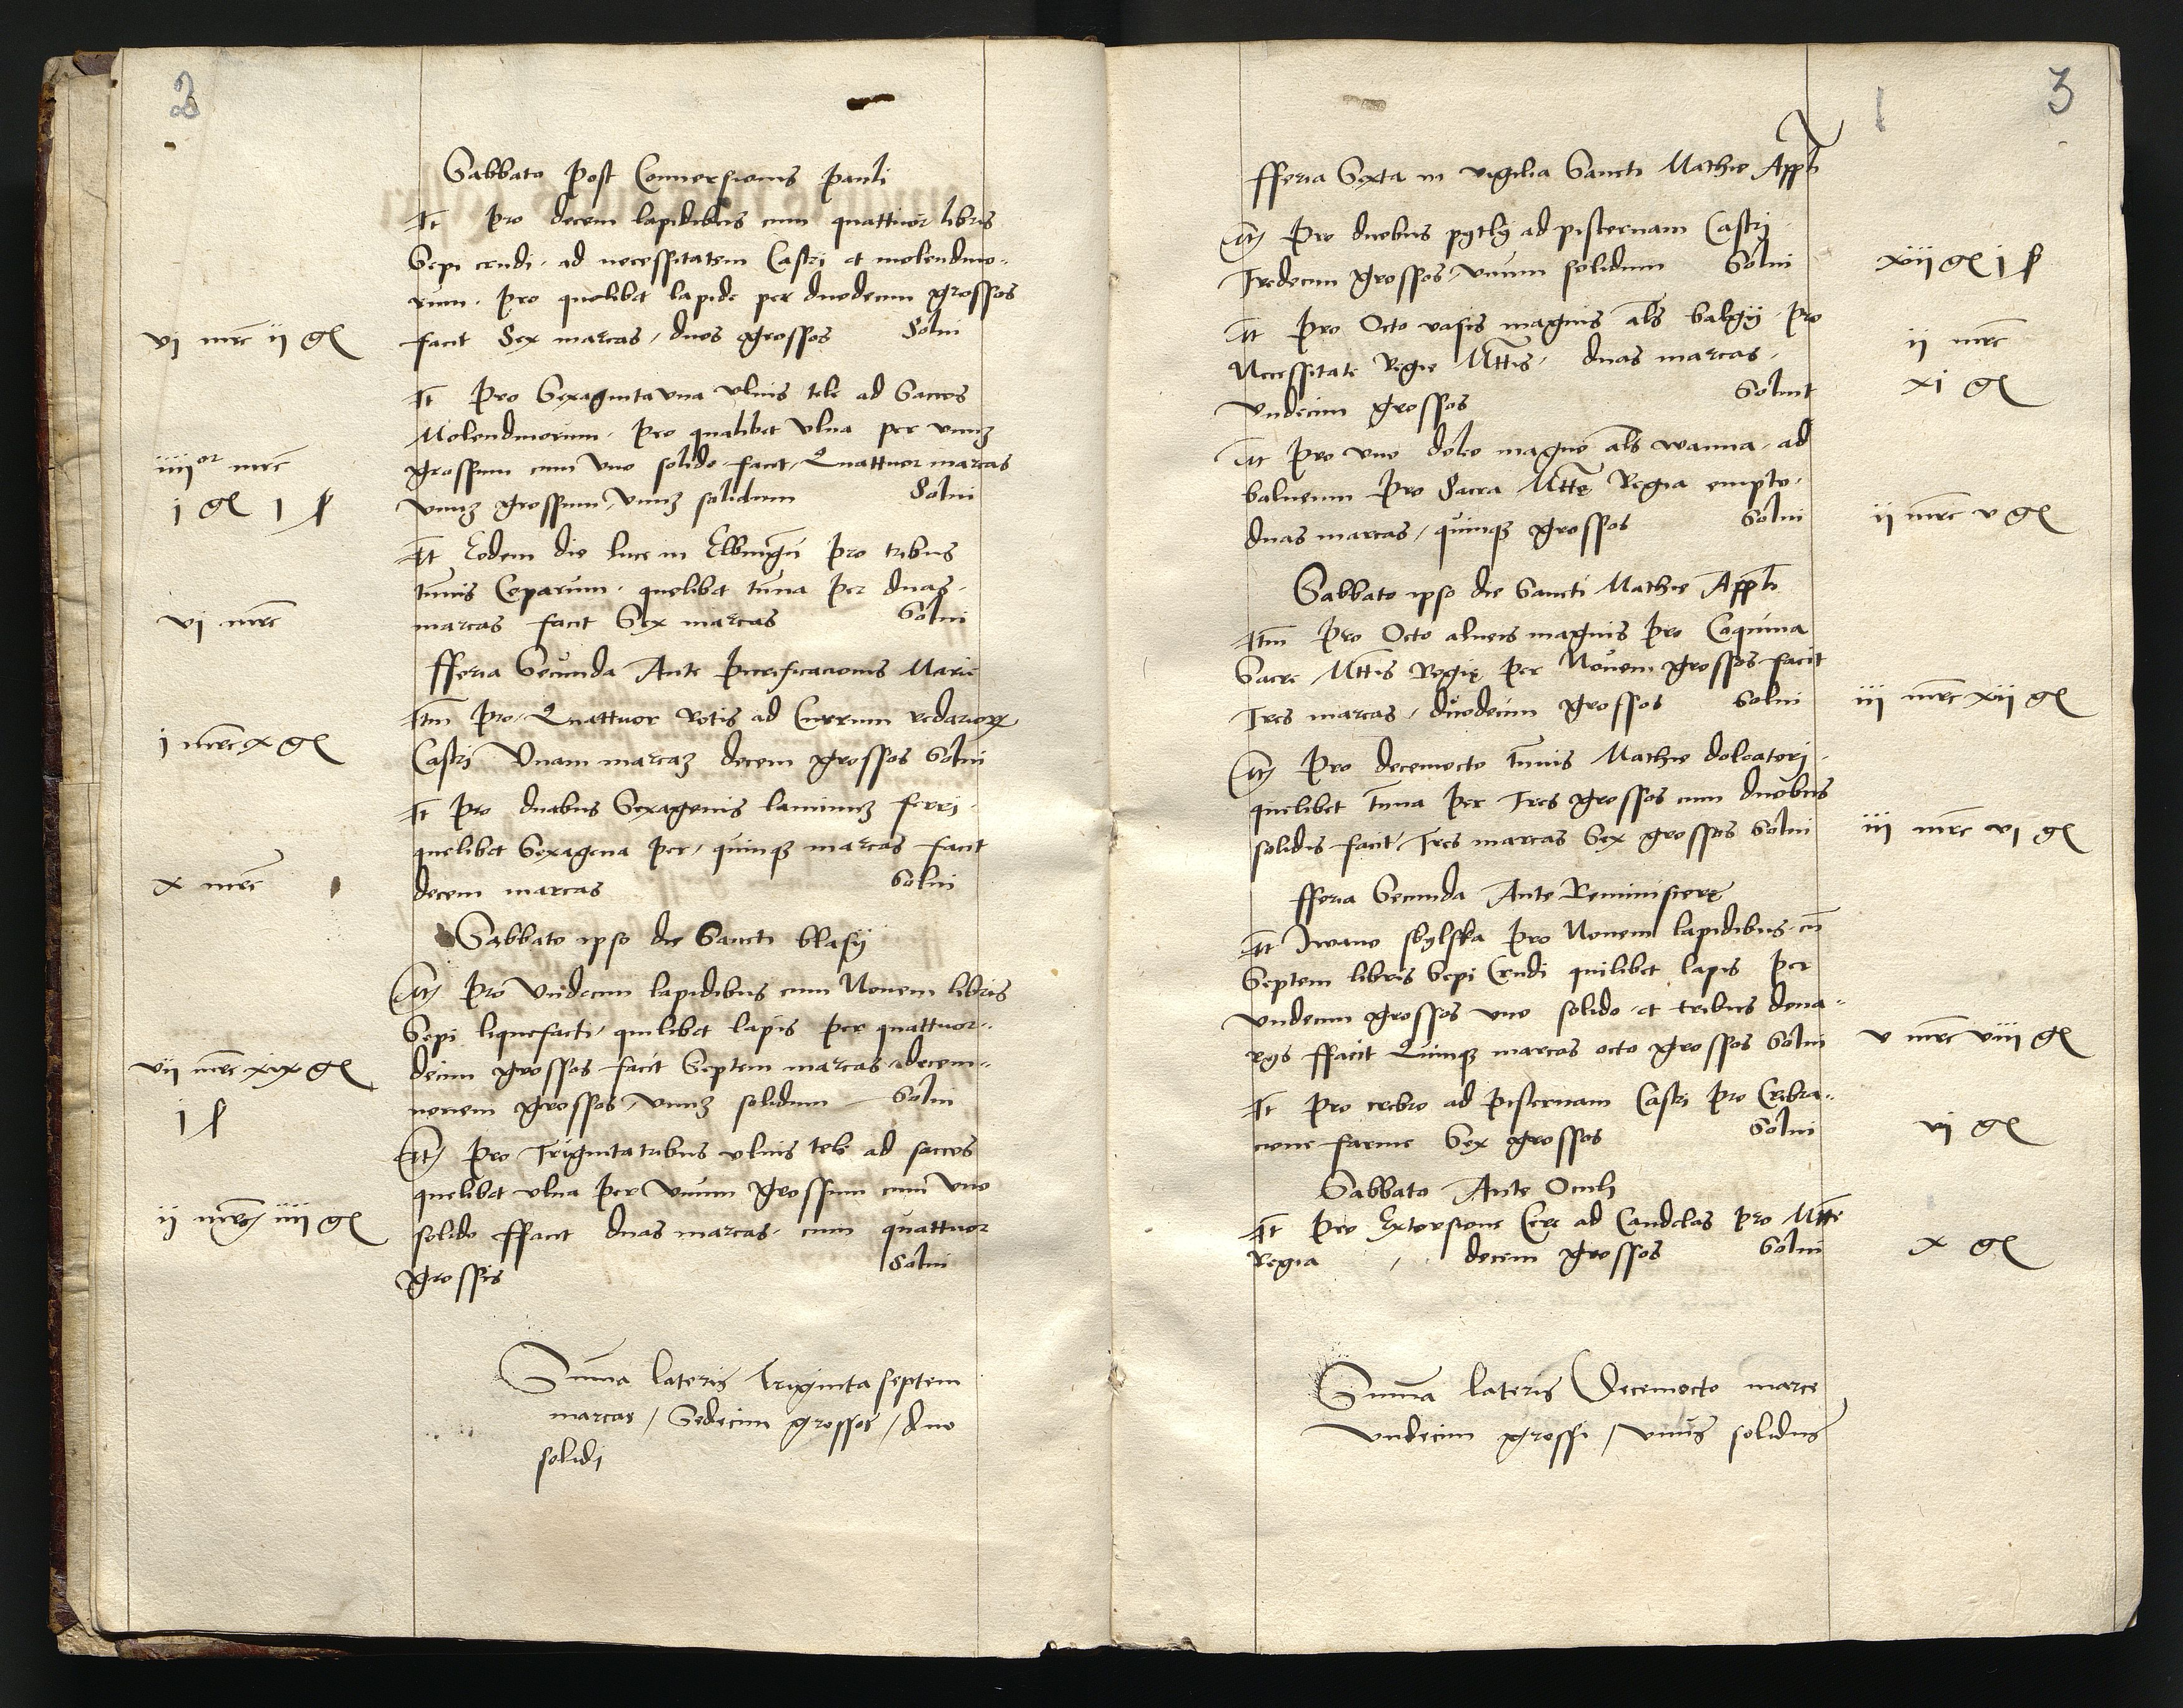 2
Sabbato Post Conuersionis Pauli
It Pro decem lapidibus cum quattuor libris
Sepi crudi. ad necessitatem Castri et molendino-
rum. Pro quolibet lapide per duodecim grossos
vi mrc ii gl facit Sex marcas, duos grossos Solui
It Pro Sexaginta vna vlnis tele ad Saccos
Molendinorum. Pro qualibet vlna per vnuz
iiiior mrc grossum cum vno solido facit Quattuor marcas
j gl j ſ vnuz grossum, vnuz solidum Solui
It Eodem die luce in Elbingu Pro tribus
tunis Ceparum. quelibet tuna Per duas
vi mrc marcas facit Sex marcas Solui
fferia Secunda Ante Purificacionis Marie
Itm Pro Quattuor Rotis ad Currum redarior
j mrc x gl Castri Vnam marcaz decem grossos Solui
It Pro duabus Sexagenis laminuz ferri
quelibet Sexagena Per quinqz marcas facit
x mrc decem marcas Solui
Sabbato ipso die Sancti blasij
It Pro Vndecim lapidibus cum Nouem libris
Sepi liquefacti, quilibet lapis Per quattuor-
vii mrc xix gl decim grossos facit Septem marcas decem-
j ſ nouem grossos, vnuz solidum Solui
It Pro Triginta tribus vlnis tele ad saccos
quelibet vlna Per Vnum Grossum cum vno
ii mrc iiii gl solido ffacit duas marcas. cum quattuor
grossis Solui
Summa lateris Triginta septem
marcas / Sedecim grossos / duo
solidi
1 3
fferia Sexta in vigilia Sancti Mathie Appli
It Pro duobus pytly ad pisternam Castri
Tredecim grossos, vnum solidum Solui xiii gl j ſ
It Pro Octo vasis magnis als balgij Pro
Necessitate Regie Mttis. duas marcas. ii mrc
Vndecim grossos Soluit xi gl
It Pro vno dolio magno als wanna. ad
balneum Pro Sacra Mtte Regia empto.
duas marcas, quinqz grossos Solui ii mrc v gl
Sabbato ipso die Sancti Mathie Appli
Itm Pro Octo alueis magnis Pro Coquina
Sacre Mttis Regie Per Nouem grossos facit
Tres marcas, duodecim grossos Solui iii mrc xii gl
It Pro decemocto tunis Mathie doleatori
quelibet tuna Per Tres grossos cum duobus
solidis facit Tres marcas Sex grossos Solui iii mrc vi gl
fferia Secunda Ante Reminiscere
It Iwano sbylska Pro Nouem lapidibus cu
Septem libris Sepi Crudi quilibet lapis Per
Vndecim grossos vno solido et tribus dena-
rys ffacit Quinqz marcas octo grossos Solui v mrc viii gl
It Pro cribro ad Pisternam Castri Pro Cribra-
cione farine Sex grossos Solui vi gl
Sabbato Ante Oculi
It Pro Extorsione Cere ad Candelas Pro Mtte
Regia , decem grossos Solui x gl
Summa lateris Decemocto marce
Vndecim grossi / vnus solidus